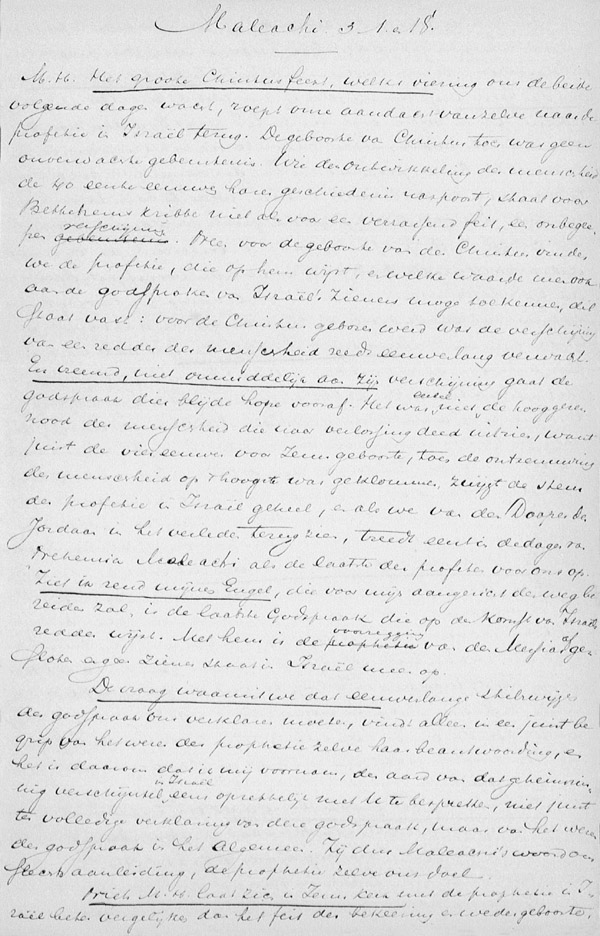 Maleachi 3 . 1. a 18.
M.H. Het groote Christusfeest, welks viering ons de beide
volgende dagen wacht, roept onze aandacht van zelve naar de
profetie in Israël terug. De geboorte van Christus toch was geen
onverwachte gebeurtenis. Wie de ontwikkeling der menschheid
de 40 eerste eeuwen harer geschiedenis naspoort, staat voor
Bethlehems kribbe niet als voor een verrassend feit, een onbegre-
pen verschijning gebeurtenis. Reeds voor de geboorte van den Christus vinden
we de profetie, die op hem wijst, en welke waarde men ook
aan de godspraken van Israëls Zieners moge toekennen, dit
staat vast: voor de Christus geboren werd was de verschijning
van een redder der menschheid reeds eeuwenlang verwacht.
En vreemd, niet onmiddelijk aan zijn verschijning gaat de
godspraak dier blijde hope vooraf. Het was eerst, niet de hooggere-
nood der menschheid die naar verlossing deed uitzien, want
juist de vier eeuwen voor Jezus geboorte, toen de ontreddering
der menschheid op 't hoogste was geklommen, zwijgt de stem
der profetie in Israël geheel, en als we van den Dooper der
Jordaan in het verleden terug zien, treedt eerst in de dagen van
Nehemia Maleachi als de laatste der profeten voor ons op.
Ziet ik zend mijnen Engel, die voor mijn aangezicht den weg be-
reiden zal, is de laatste Godspraak die op de komst van Israëls
redder wijst. Met hem is de voorzegging prophetie van den Messias afge-
sloten en geen Ziener staat in Israël meer op.
De vraag waaruit we dat eeuwenlange stilzwijgen
der godspraak ons verklaren moeten, vindt alleen in een juist be-
grip van het wezen der prophetie zelve haar beantwoording, en
het is daarom dat ik mij voornam, den aard van dat geheimzin-
nig verschijnsel in Israël eens opzettelijk met U te bespreken, niet juist
ter volledige verklaring van deze godspraak, maar van het wezen
der godspraak in het algemeen. Zij dus Maleachi's woord ons
slechts aanleiding, de prophetie zelve ons doel.
Niets M.H. laat zich in Jezus kerk met de prophetie in Is-
raël beter vergelijken dan het feit der bekeering en wedergeboorte.